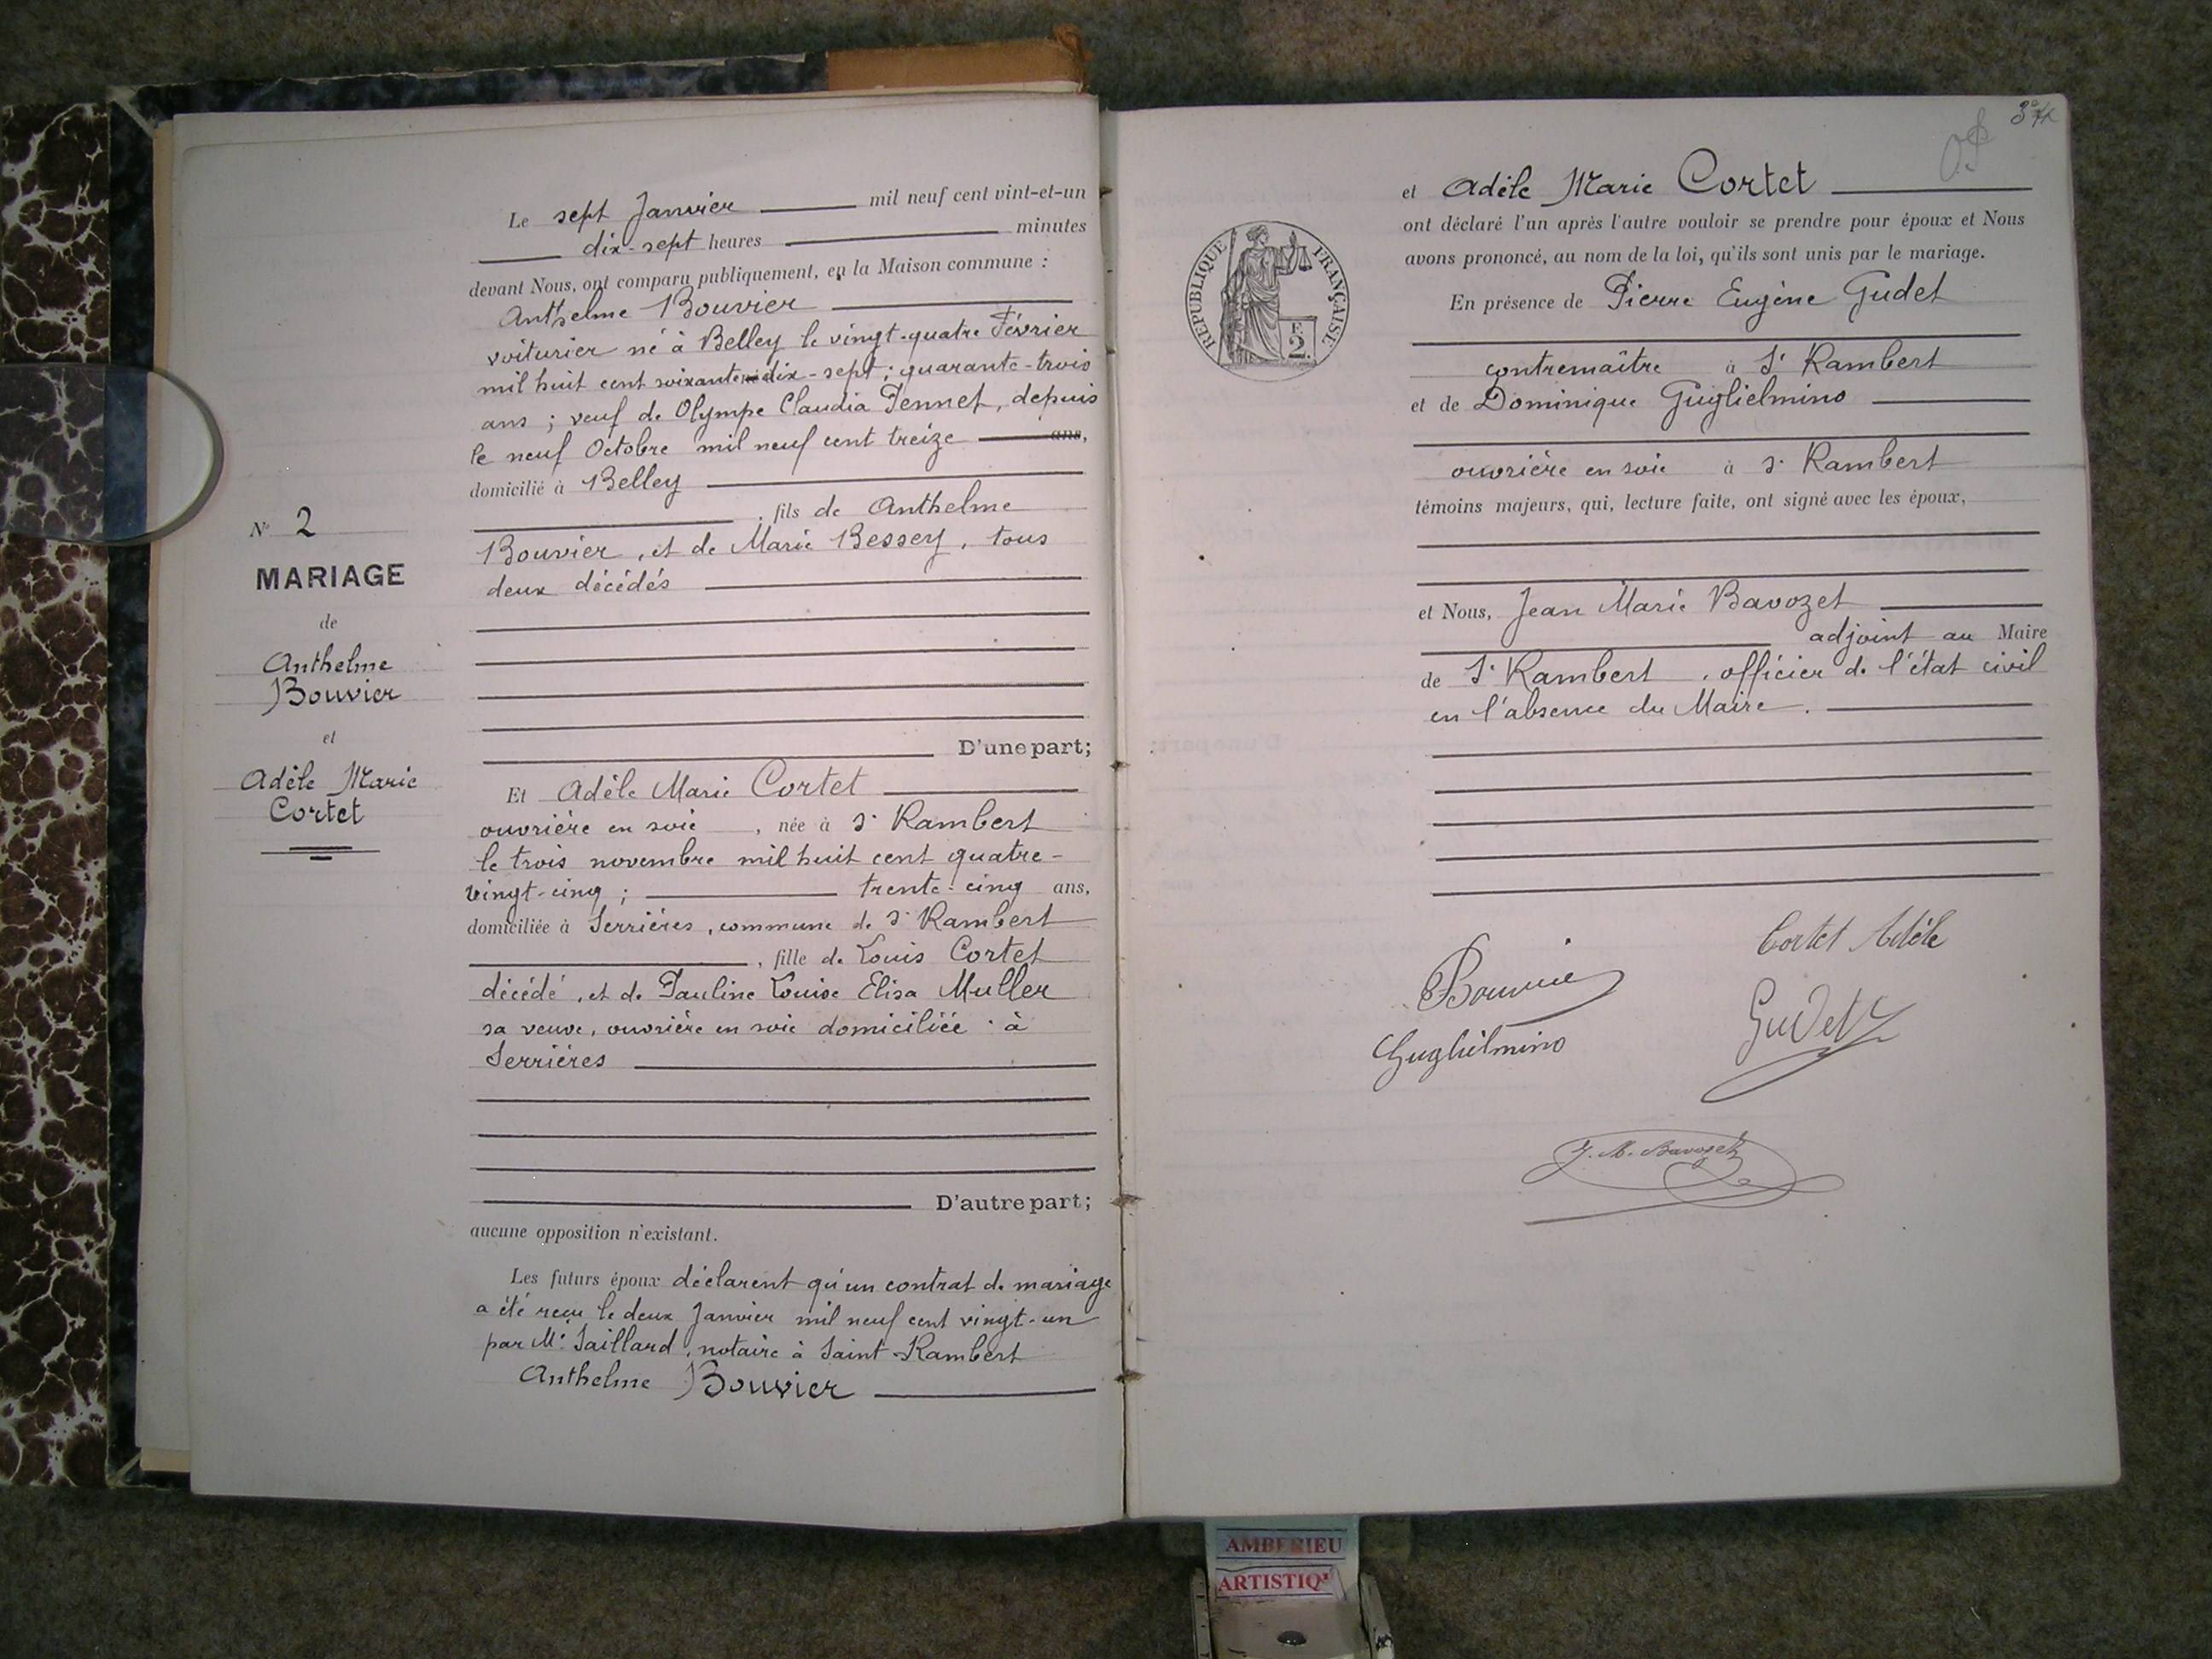 N° 2
MARIAGE
de
Anthelme
Bouvier
et
Adèle Marie
Cortet
Le sept Janvier mil neuf cent vint-et-un
dix-sept heures minutes
devant Nous, ont comparu publiquement, en la Maison commune :
Anthelme Bouvier
voiturier né à Belley le vingt-quatre Février
mil huit cent soixante dix-sept ; quarante-trois
ans ; veuf de Olympe Claudia Pennet, depuis
le neuf Octobre mil neuf cent treize ans,
domicilié à Belley
, fils de Anthelme
Bouvier, et de Marie Bessey, tous
deux décédés
D'une part;
Et Adèle Marie Cortet
ouvrière en soie , née à St Rambert
le trois novembre mil huit cent quatre-
vingt-cinq ; trente-cinq ans,
domiciliée à Serrières, commune de St Rambert
, fille de Louis Cortet
décédé, et de Pauline Louise Elisa Muller
sa veuve, ouvrière en soie domiciliée à
Serrières
D'autre part;
aucune opposition n'existant.
Les futurs époux déclarent qu'un contrat de mariage
a été reçu le deux Janvier mil neuf cent vingt-un
par Me Saillard, notaire à Saint-Rambert
Anthelme Bouvier
et Adèle Marie Cortet
ont déclaré l'un après l'autre vouloir se prendre pour époux et Nous
avons prononcé, au nom de la loi, qu'ils sont unis par le mariage.
RÉPUBLIQUE FRANÇAISE
F.
2.
En présence de Pierre Eugène Gudet
contremaître à St Rambert
et de Dominique Guglielmino
ouvrière en soie à St Rambert
témoins majeurs, qui, lecture faite, ont signé avec les époux,
et Nous, Jean Marie Bavozet
adjoint au Maire
de St Rambert, officier de l'état civil
en l'absence du Maire.
Cortet Adèle
Bouvier
Gudet
Guglielmino
J. M. Bavozet
AMBERIEU
ARTISTIQ